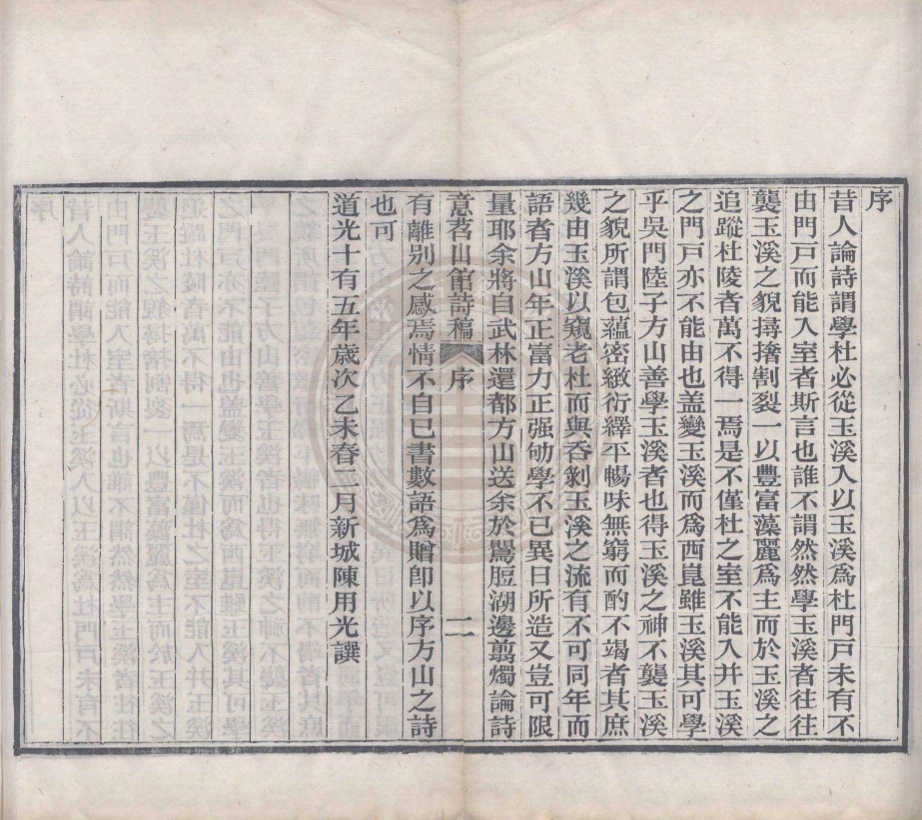 序
昔人論詩謂學杜必從玉溪入以玉溪爲杜門戶未有不
由門戶而能入室者斯言也誰不謂然然學玉溪者往往
襲玉溪之貌撏撦割裂一以豐富藻麗爲主而於玉溪之
追蹤杜陵者萬不得一焉是不僅杜之室不能入并玉溪
之門戶亦不能由也盖變玉溪而爲西崑雖玉溪其可學
乎吳門陸子方山善學玉溪者也得玉溪之神不襲玉溪
之貌所謂包蘊密緻衍繹平暢味無窮而酌不竭者其庶
幾由玉溪以窺老杜而與呑剝玉溪之流有不可同年而
語者方山年正富力正强劬學不已異日所造又豈可限
量耶余將自武林還都方山送余於鶯脰湖邊翦燭論詩
意苕山館詩稿 序 二
有離別之感焉情不自已書數語爲贈卽以序方山之詩
也可
道光十有五年歲次乙未春三月新城陳用光譔